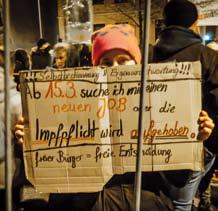 !!! Selbstbestimmung & Eigenverantwortung !!!
Ab 15.3 suche ich mir einen
neuen JOB oder die
Impfpflicht wird aufgehoben.
freier Bürger = freie Entscheidung